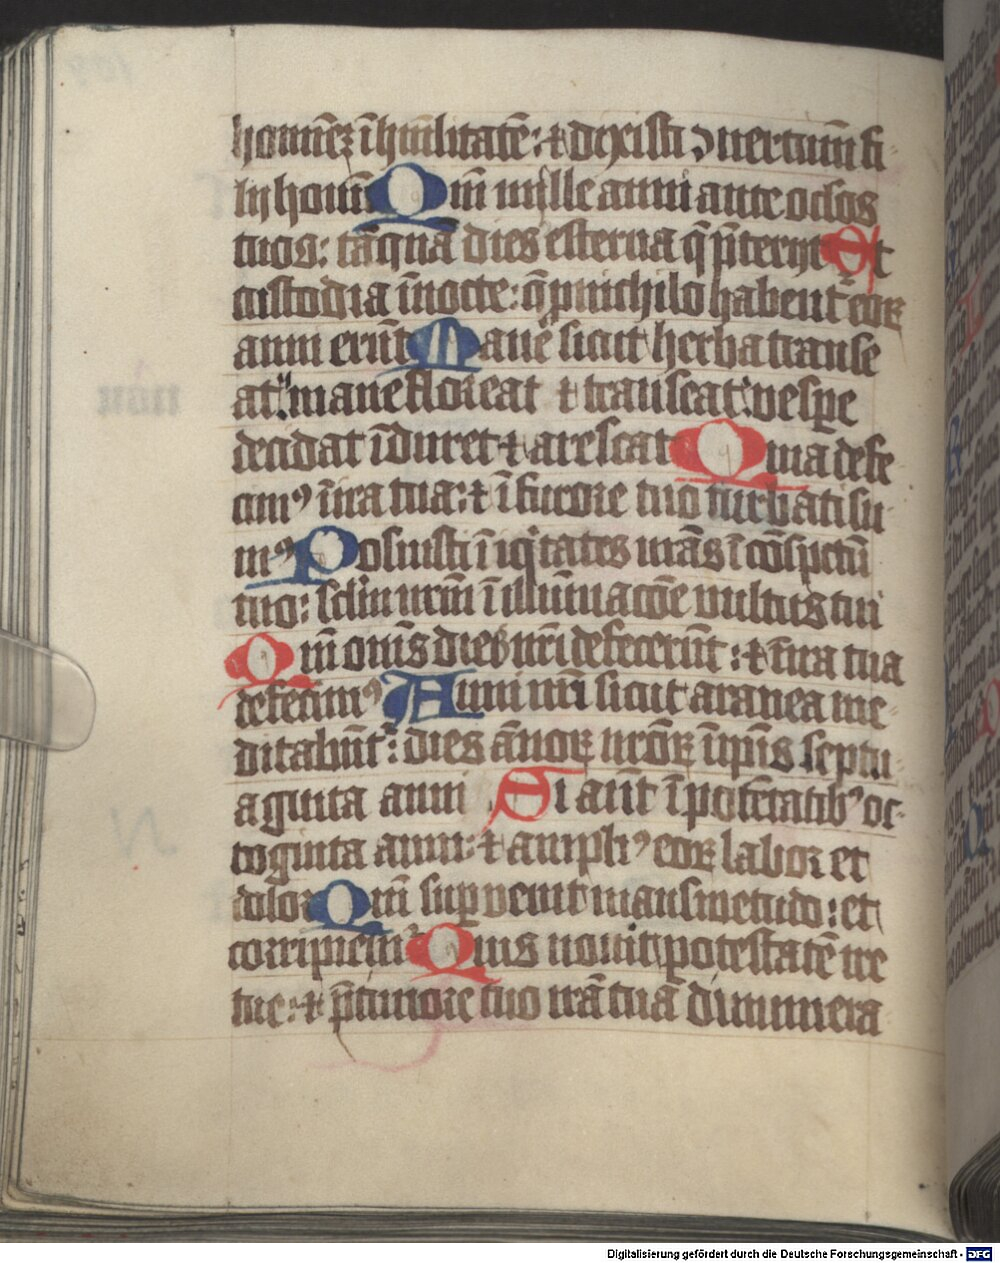 homineʒ ī hūilitatē: ⁊ dixisti ɔuertimī fi-
lij homī Qm̄ mille anni ante oclos
tuos: tāquā dies esterna q̄ p̄terijt Et
custodia ī nocte: q̄ p nichilo habent᷑ eoꝝ
anni erūt Mane sicut herba transe
at: mane floreat ⁊ transeat: vespe
decidat īduret ⁊ arescat Quia defe-
cimꝰ ī ira tua: ⁊ ī furore tuo turbati su-
mꝰ Posuisti īiq̇tates nr̄as ī cōspectu
tuo: sclm nrm̄ ī illūinacōe vultus tui
Qm̄ om̄s dies nr̄i defecerūt: ⁊ ī ira tua
defecimꝰ Anni nr̄i sicut aranea me-
ditabūt᷑: dies ānoꝝ nrōꝝ ī ip̄is septu-
aginta anni Si aūt ī potētatibꝰ oc-
toginta anni: ⁊ ampliꝰ eoꝝ labor et
dolor Qm̄ supvenit mansuetudo: et
corripiemʳ Quis novit ptestatē ire
tue: ⁊ p̄ timore tuo irā tuā dinumera
Digitalisierung gefördert durch die Deutsche Forschungsgemeinschaft - DFG